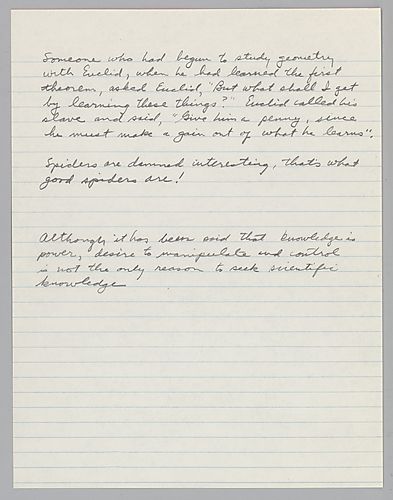 Someone who had begun to study geometry
with Euclid, when he had learned the first
theorem, asked Euclid, "But what shall I get
by learning these things?" Euclid called his
slave and said, "Give him a penny, since
he must make a gain out of what he learns".
Spiders are damned interesting, that's what
good spiders are!
Although it has been said that knowledge is
power, desire to manipulate and control
is not the only reason to seek scientific
knowledge